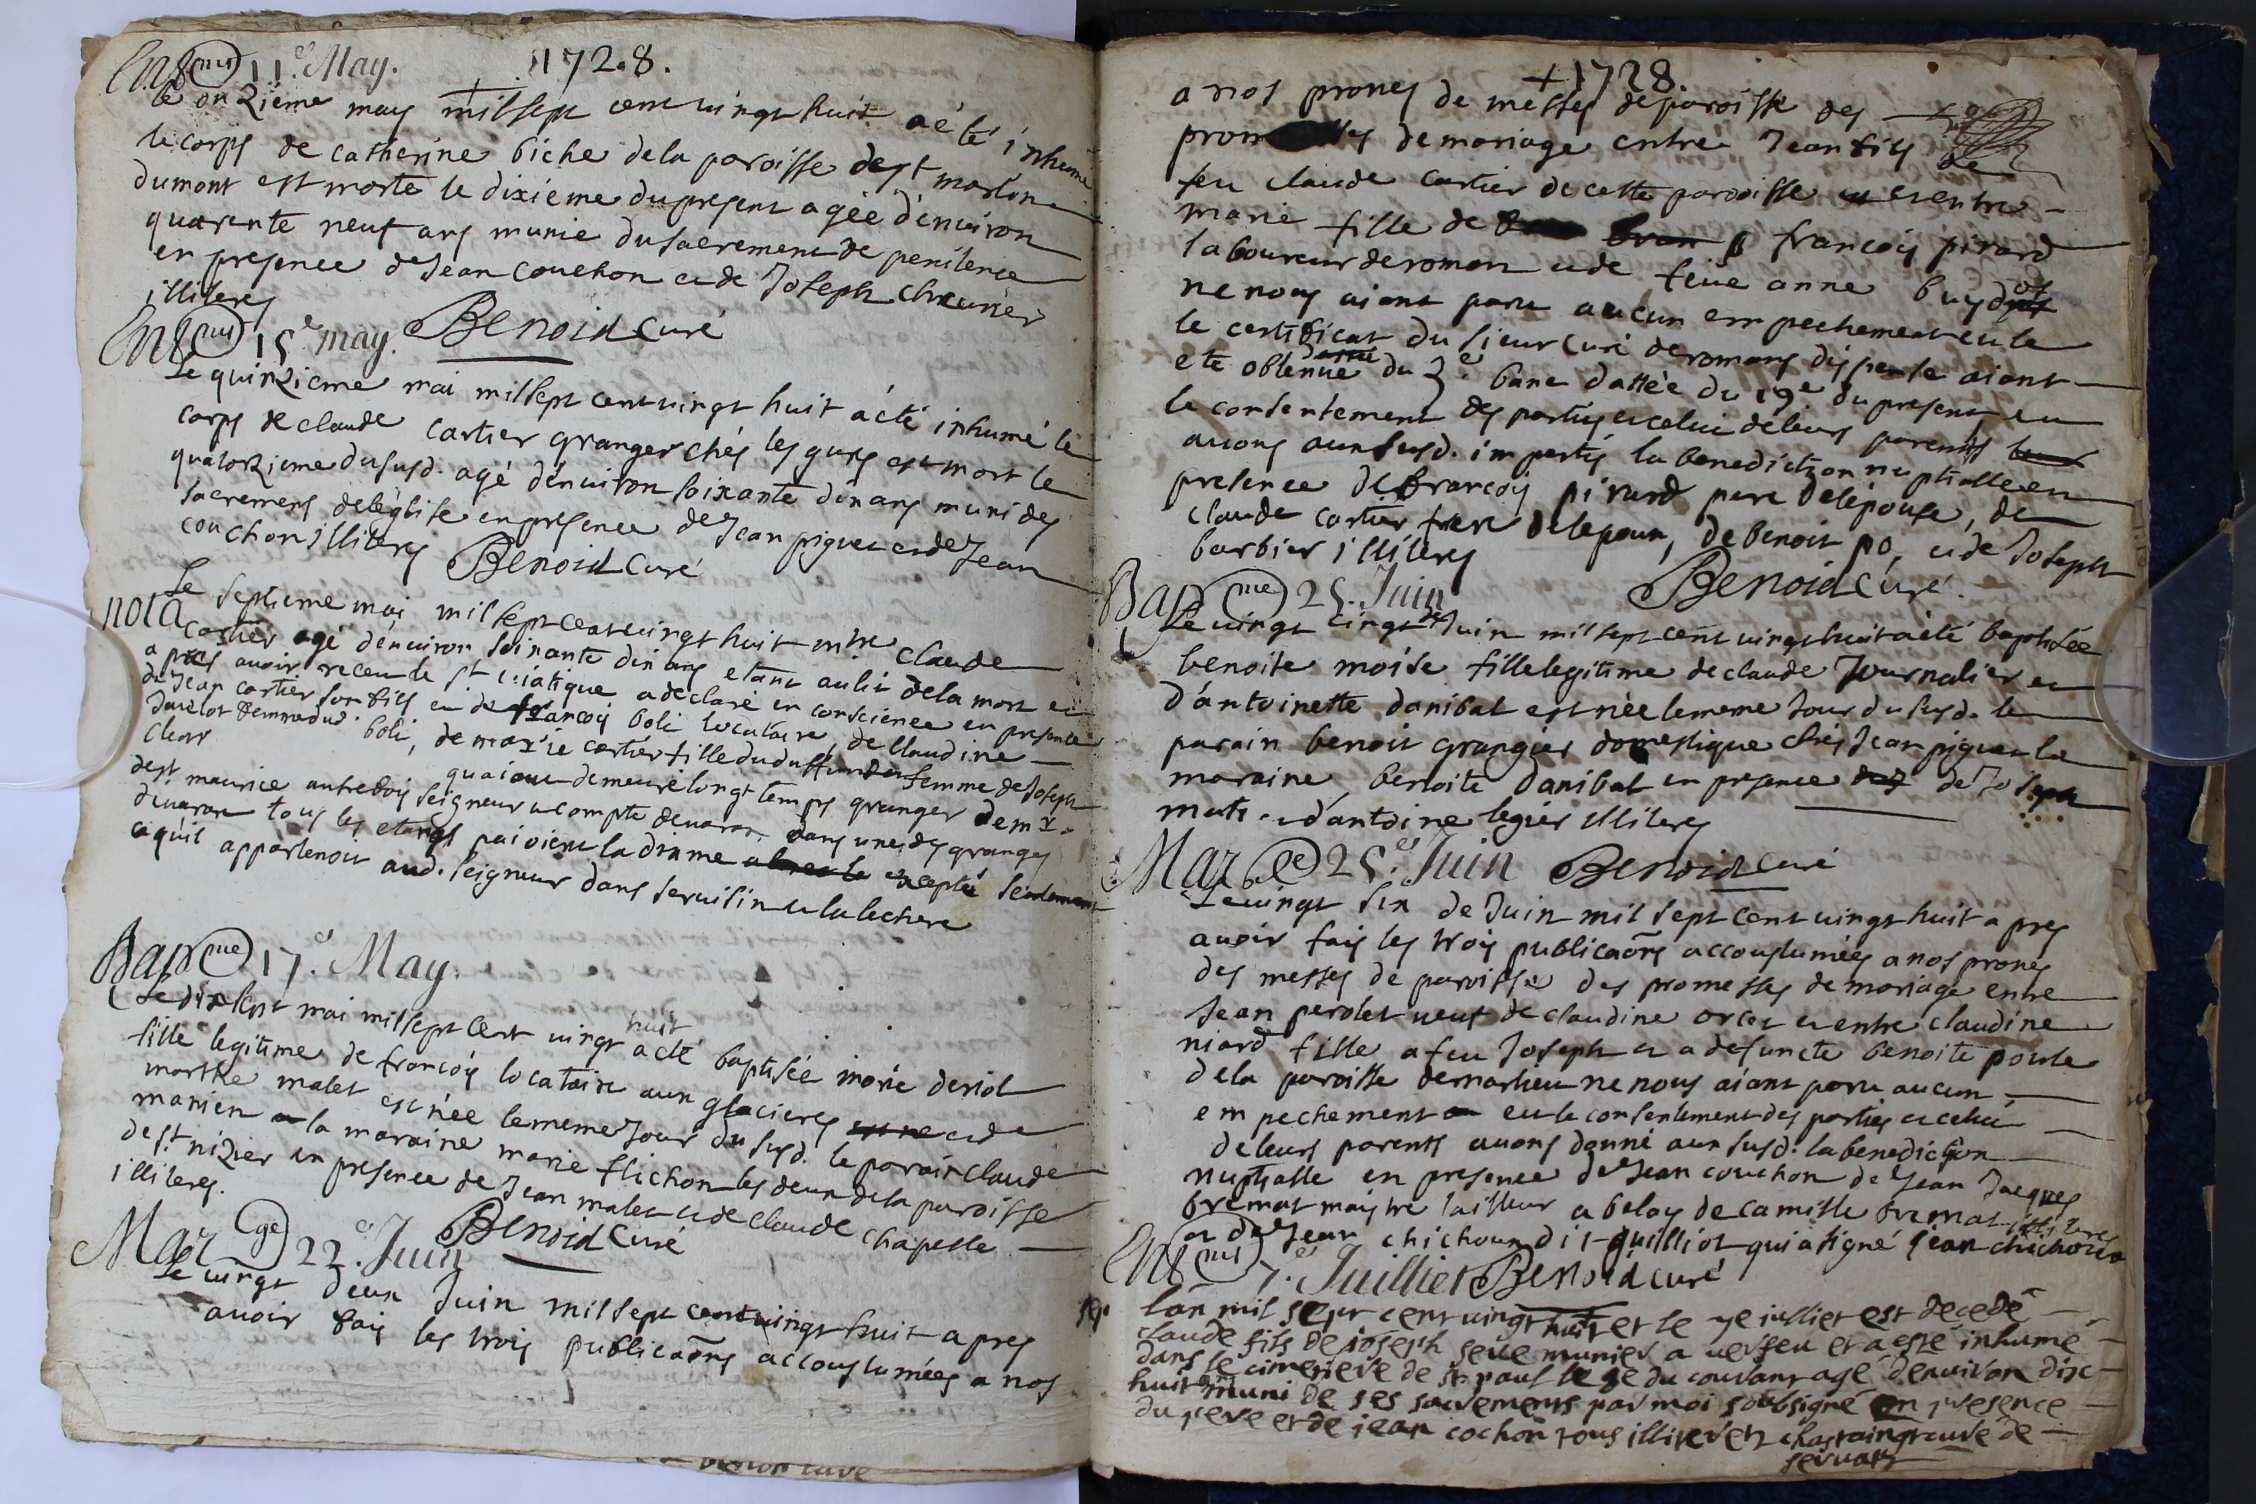 1728.
Ent mnt 11e May.
le onzième may mil sept cent vingt huit a été inhumé
le corps de catherine biche dela paroisse de st marlon
dumont est morte le dixième du present agée d'environ
quarente neuf ans munie du sacrement de penitence
en presence de Jean couchon et de Joseph chevrier
illiteres
Benoid Curé
Ent mnt 15e may.
Le quinzieme mai mil sept cent vingt huit a été inhumé le
corps de claude cartier granger chés les gurs est mort le
quatorzieme du susd. agé d'environ soixante dix ans muni des
sacremens de léglise en presence de Jean piguet et de Jean
couchon illiteres Benoid Curé
nota
Le septieme mai mil sept cent vingt huit mtre claude
cartier agé d'environ soixante dix ans etant au lit dela mort et
a pres avoir receu le st viatique a declaré en conscience en presence
de Jean cartier son fils et de françois boli locataire, de claudine
Javelot femme dud. boli, de marie cartier fille dudit femme de Joseph
clear qu'aiant demeuré longt temps granger de mr
de st maurice autrefois seigneur et compte devaran dans une des granges
devaran tous les etangs paioient la dixme excepté seulement
ce qu'il appartenoit aud. seigneur dans servisin et la lechere
Bap me 17e May.
Le dix sept mai mil sept cent vingt huit a été baptisée marie deriol
fille legitime de françois locataire aux glacieres et de
marthe malet est née le meme jour du susd. le parain claude
manien la maraine marie flichon les deux dela paroisse
de st nizier en presence de Jean malet et de claude chapelle
illiteres.
Benoid Curé
Mar ge 22e Juin
Le vingt deux Juin mil sept cent vingt huit apres
avoir fais les trois publicaõns accoustumées a nos
+ 1728.
a nos prones de messes de paroisse des
promesses de mariage entre Jean fils de
feu claude cartier de cette paroisse et entre
marie fille de françois pirard
laboureur de roman et de feüe anne buydot
ne nous aiant paru aucun empechement eu le
le certificat du sieur curé de romans dispense aiant
ete obtenue du 3e banc dattée du 19e du present eu
le consentement des parties et celui de leurs parents
avons aux susd. impartis la benediction nuptialle en
presence de françois pirard pere de l'épouse, de
claude cartier frere de lepoux, de benoit po, et de Joseph
barbier illiteres
Benoid Curé.
Bap me 25. Juin
Le vingt cinq Juin mil sept cent vingt huit a été baptisée
benoite moise fille legitime de claude Journalier et
d'antoinette danibal est née le meme Jour du susd. le
parain benoit grangier domestique chés Jean piguet la
maraine benoite danibal en presence de Joseph
mati et d'antoine legier illiteres
Benoid Curé
Mar ge 25e Juin
Le vingt six de Juin mil sept cent vingt huit a pres
avoir fais les trois publicaõns accoustumées a nos prones
des messes de paroisse des promesses de mariage entre
Jean perolet veuf de claudine orcet et entre claudine
niard fille a feu Joseph et a defuncte benoite poule
dela paroisse de marlieu ne nous aiant paru aucun
empechement eu le consentement des parties et celui
de leurs parents avons donné aux susd. la benediction
nuptialle en presence de Jean couchon de Jean Jacques
bremat maystre tailleur a beloy de camille bremat illiteres
et de Jean chichoux dit quilliot qui a signé jean chichoux
Benoid Curé
Ent mnt 7e Juillet
lan mil sept cent vingt huit et le 7e julliet est decedé
claude fils de joseph seve munier a verfeu et a esté inhumé
dans le cimetiere de st paul le 8e du courant agé denviron dix
huit ans muni de ses sacremens par moi soubsigné en presence
du pere et de jean cochon tous illiterés chastaing curé de
servas